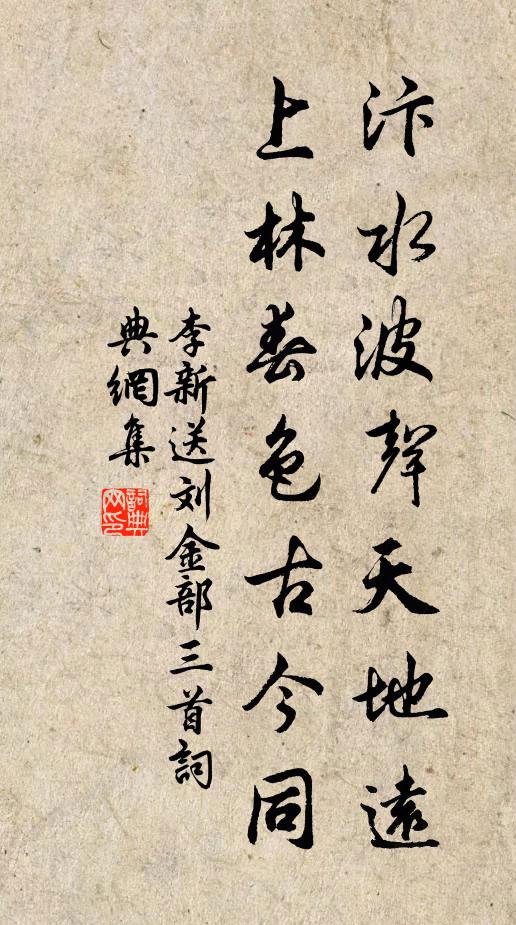 汴水波聲天地遠
上林春色古今同
李新送刘金部三首詞
典網集
詞典网印